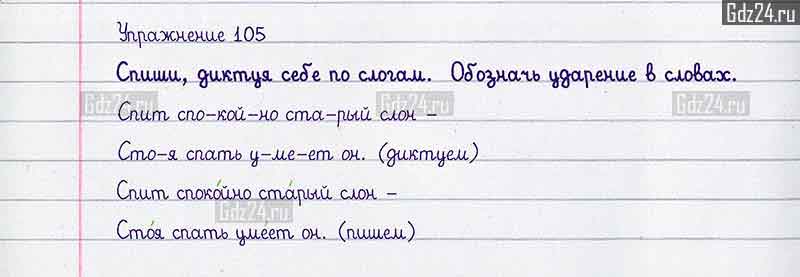 Gdz24.ru
Упражнение 105
Спиши, диктуя себе по слогам. Обозначь ударение в словах.
Gdz24.ru Gdz24.ru Gdz24.ru
Спит спо-кой-но ста-рый слон -
Сто-я спать у-ме-ет он. (диктуем)
Спит споко́йно ста́рый слон -
Gdz24.ru
Сто́я спать уме́ет он. (пишем)